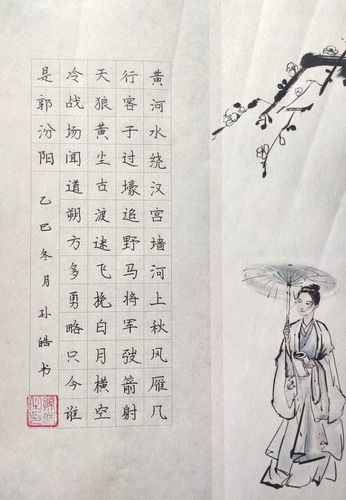 黄河水绕汉宫墙河上秋风雁几
行客子过壕追野马将军弢箭射
天狼黄尘古渡迷飞挽白月横空
冷战场闻道朔方多勇略只今谁
是郭汾阳 乙巳冬月 孙皓书